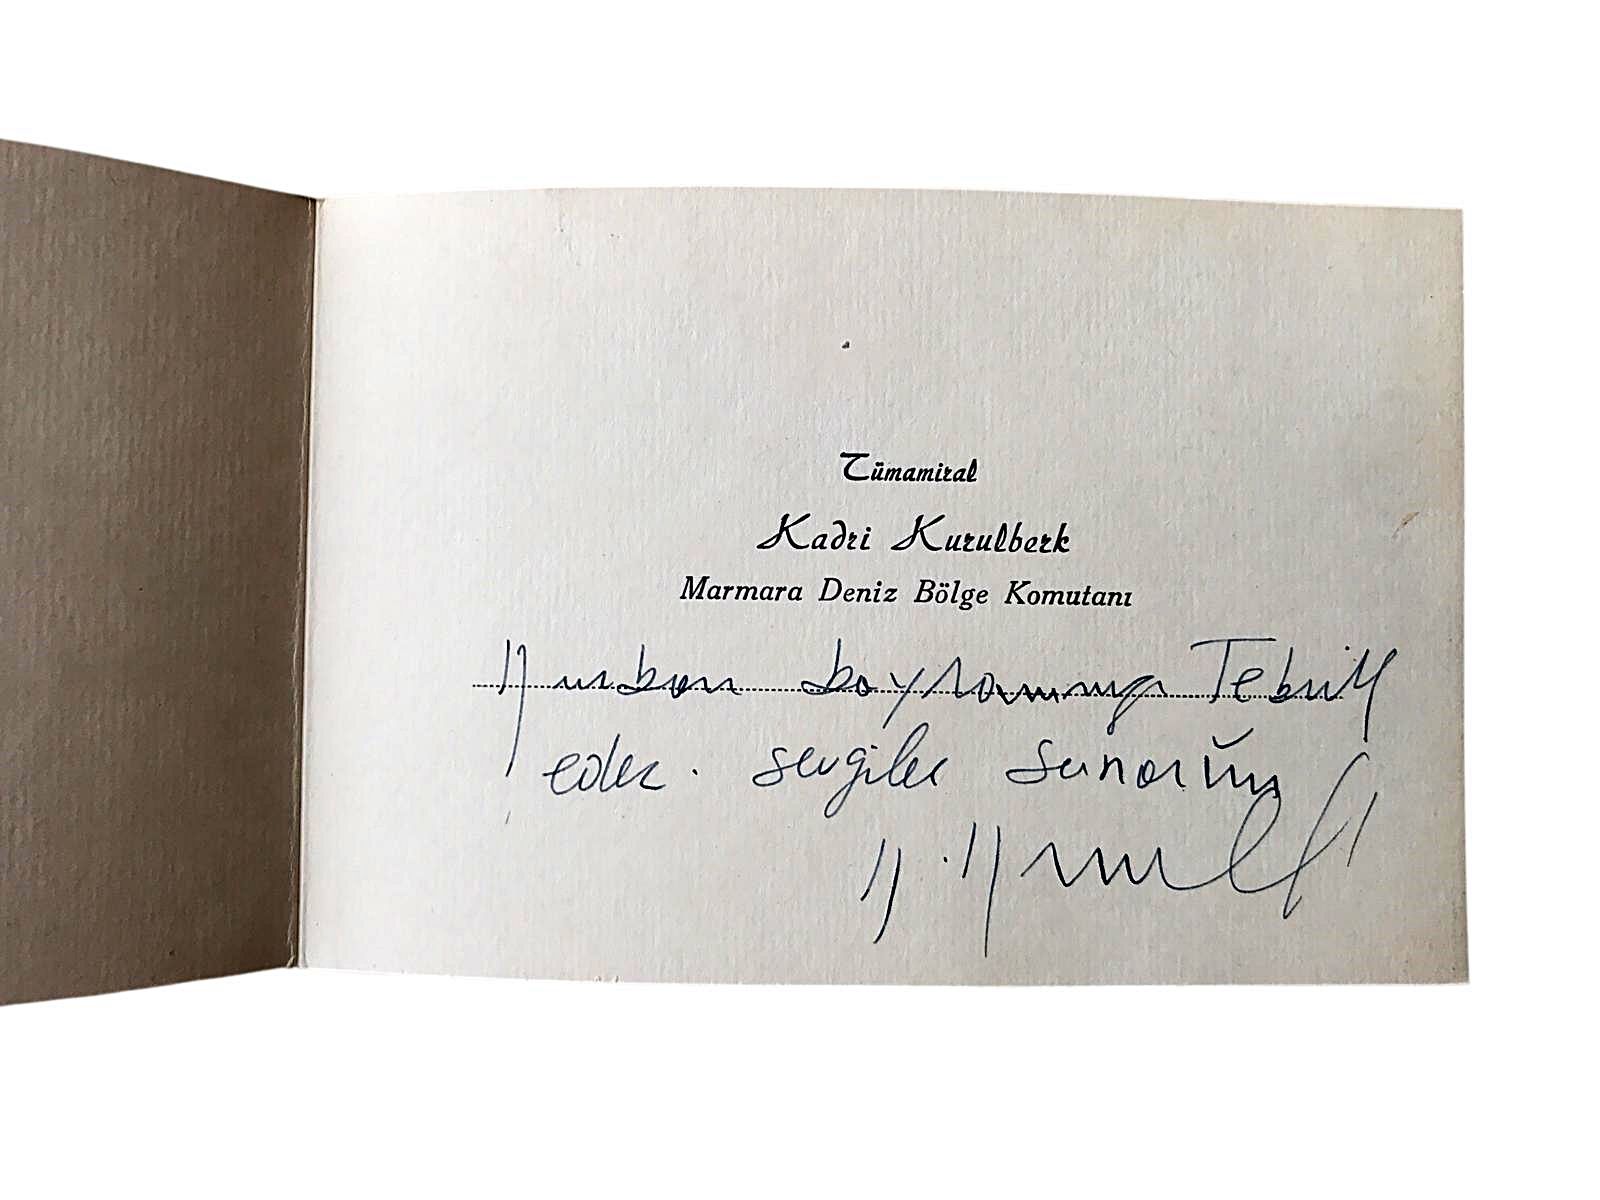 Tümamiral
Kadri Kurulberk
Marmara Deniz Bölge Komutanı
Kurban bayramınızı Tebrik
eder. sevgiler sunarım